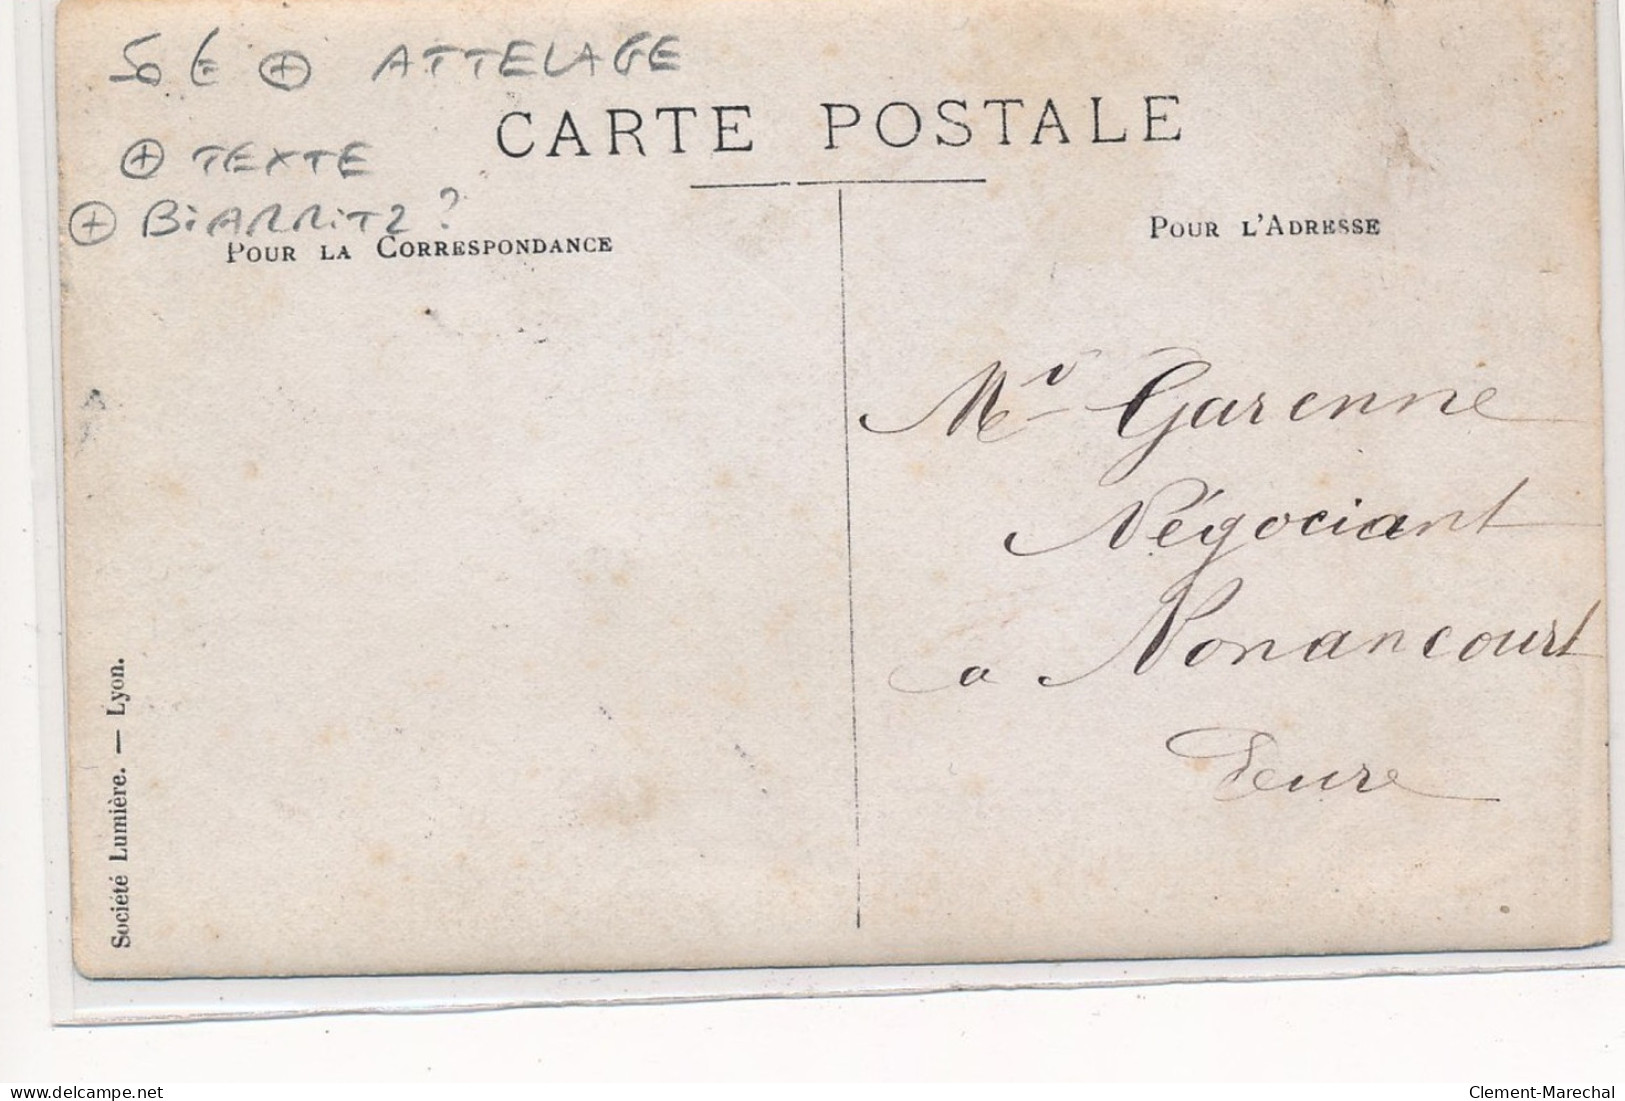 50 € + ATTELAGE
CARTE POSTALE
+ TEXTE
+ BIARRITZ ?
POUR LA CORRESPONDANCE
POUR L'ADRESSE
Mr Garenne
Négociant
a Nonancourt
Eure
Société Lumière. — Lyon.
delcampe.net
Clement-Marechal